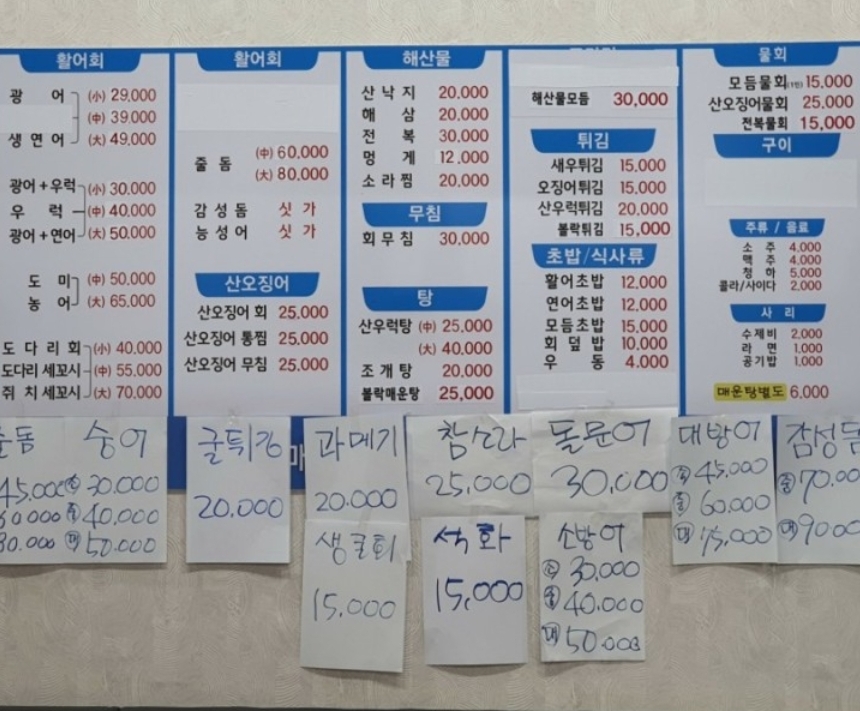 활어회
광 어 (小) 29,000
(中) 39,000
생 연 어 (大) 49,000
광어+우럭 (小) 30,000
우 럭 (中) 40,000
광어+연어 (大) 50,000
도 미 (中) 50,000
농 어 (大) 65,000
도 다 리 회 (小) 40,000
도다리 세꼬시 (中) 55,000
쥐 치 세꼬시 (大) 70,000
활어회
줄 돔 (中) 60,000
(大) 80,000
감 성 돔 싯 가
능 성 어 싯 가
산오징어
산오징어 회 25,000
산오징어 통찜 25,000
산오징어 무침 25,000
해산물
산 낙 지 20,000
해 삼 20,000
전 복 30,000
멍 게 12,000
소 라 찜 20,000
무침
회 무 침 30,000
탕
산우럭탕 (中) 25,000
(大) 40,000
조 개 탕 20,000
볼락매운탕 25,000
해산물모듬 30,000
튀김
새우튀김 15,000
오징어튀김 15,000
산우럭튀김 20,000
볼락튀김 15,000
초밥/식사류
활어초밥 12,000
연어초밥 12,000
모듬초밥 15,000
회 덮 밥 10,000
우 동 4,000
물회
모듬물회(1인) 15,000
산오징어물회 25,000
전복물회 15,000
구이
주류 / 음료
소 주 4,000
맥 주 4,000
청 하 5,000
콜라/사이다 2,000
사 리
수제비 2,000
라 면 1,000
공기밥 1,000
매운탕별도 6,000
매
돔
45.000
60.000
80.000
숭어
소 30.000
중 40.000
대 50.000
굴튀김
20.000
과메기
20.000
참소라
25,000
돌문어
30,000
대방어
소 45,000
중 60,000
대 75,000
감성돔
중 70.00
대 90.00
생굴회
15,000
석화
15,000
소방어
소 30.000
중 40.000
대 50.000